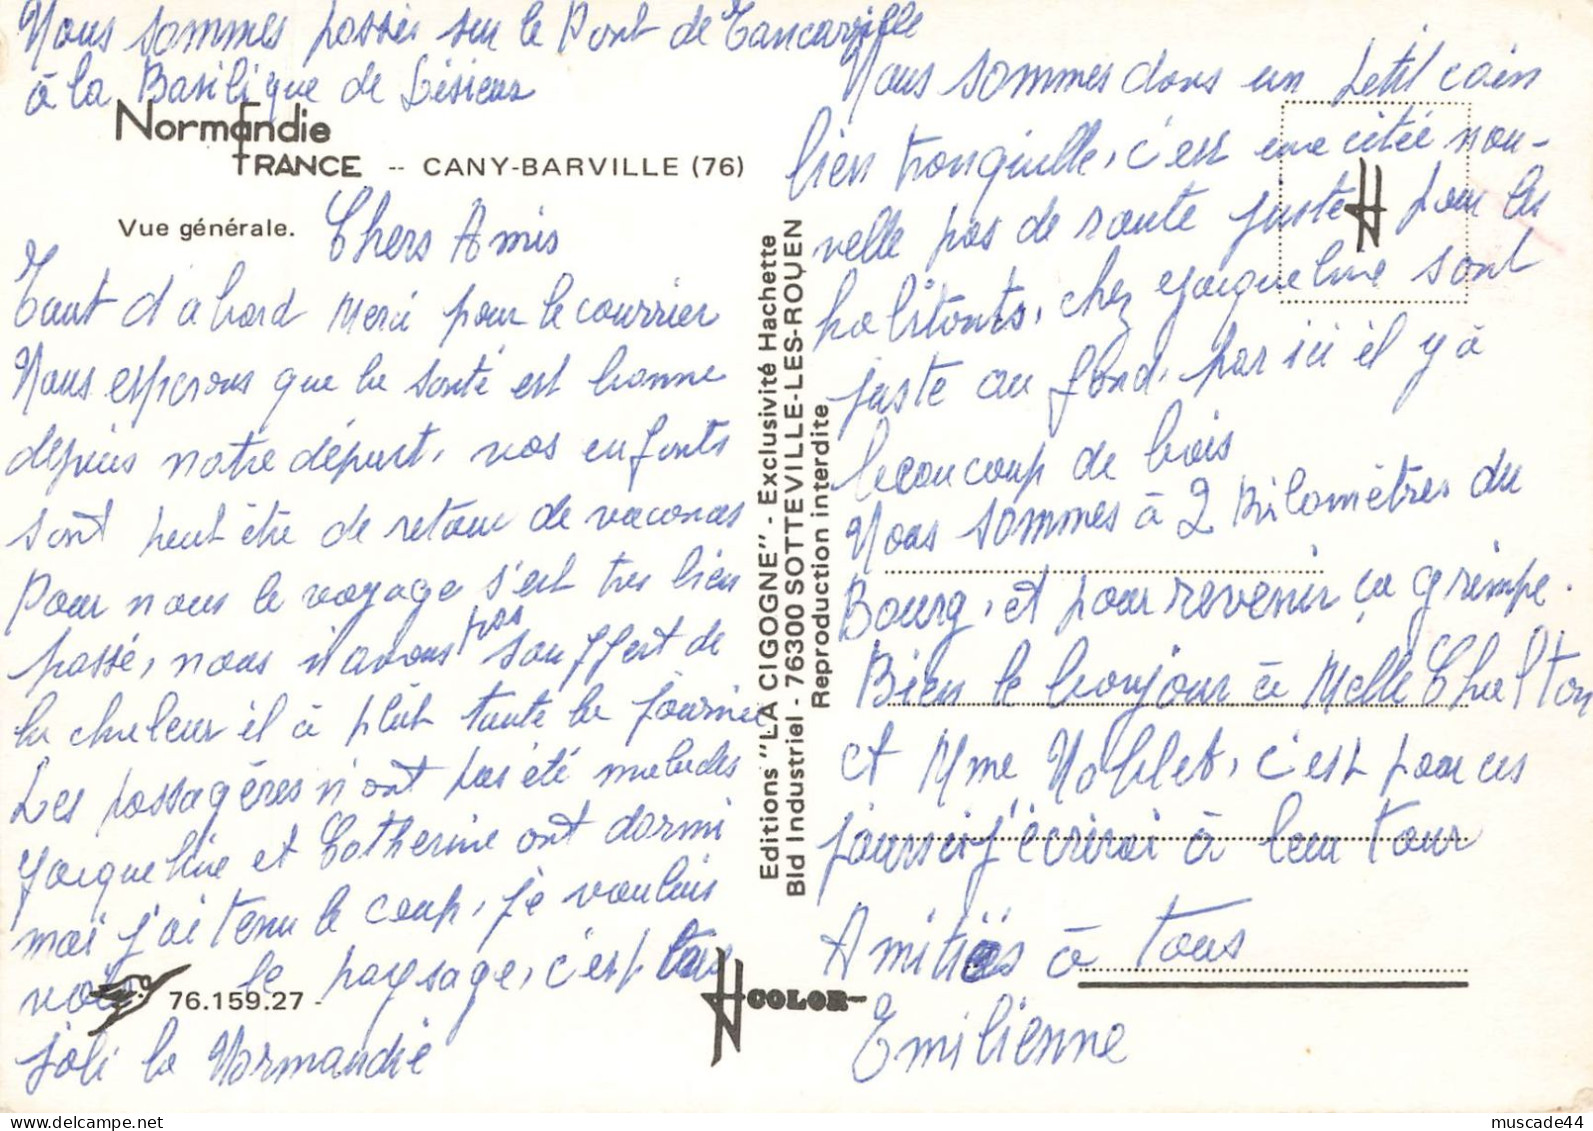 Nous sommes passés sur le Pont de Tancarville
à la Basilique de Lisieux
Normandie
FRANCE -- CANY-BARVILLE (76)
Vue générale.
Chers Amis
Tout d'abord Merci pour le courrier
Nous esperons que la santé est bonne
depuis notre départ, vos enfants
sont peut être de retour de vacances
Pour nous le voyage s'est très bien
passé, nous n'avons pas souffert de
la chaleur il à plût toute la journée
Les passagères n'ont pas été malades
Jacqueline et Catherine ont dormi
moi j'ai tenu le coup, je voulais
voir le paysage, c'est très
joli la Normandie
76.159.27 -
Editions "LA CIGOGNE" - Exclusivité Hachette
Bld Industriel - 76300 SOTTEVILLE-LES-ROUEN
Reproduction interdite
COLOR
Nous sommes dans un petit coin
bien tranquille, c'est une citée nou-
velle pas de route juste pour les
habitants, chez Jacqueline sont
juste au fond, par ici il y à
beaucoup de bois
Nous sommes à 2 Kilomètres du
Bourg, et pour revenir ça grimpe.
Bien le bonjour à Melle Chalton
et Mme Noblet, c'est pour ces
jours ci j'écrirai à leur tour
Amitiés à tous
Emilienne
muscade44